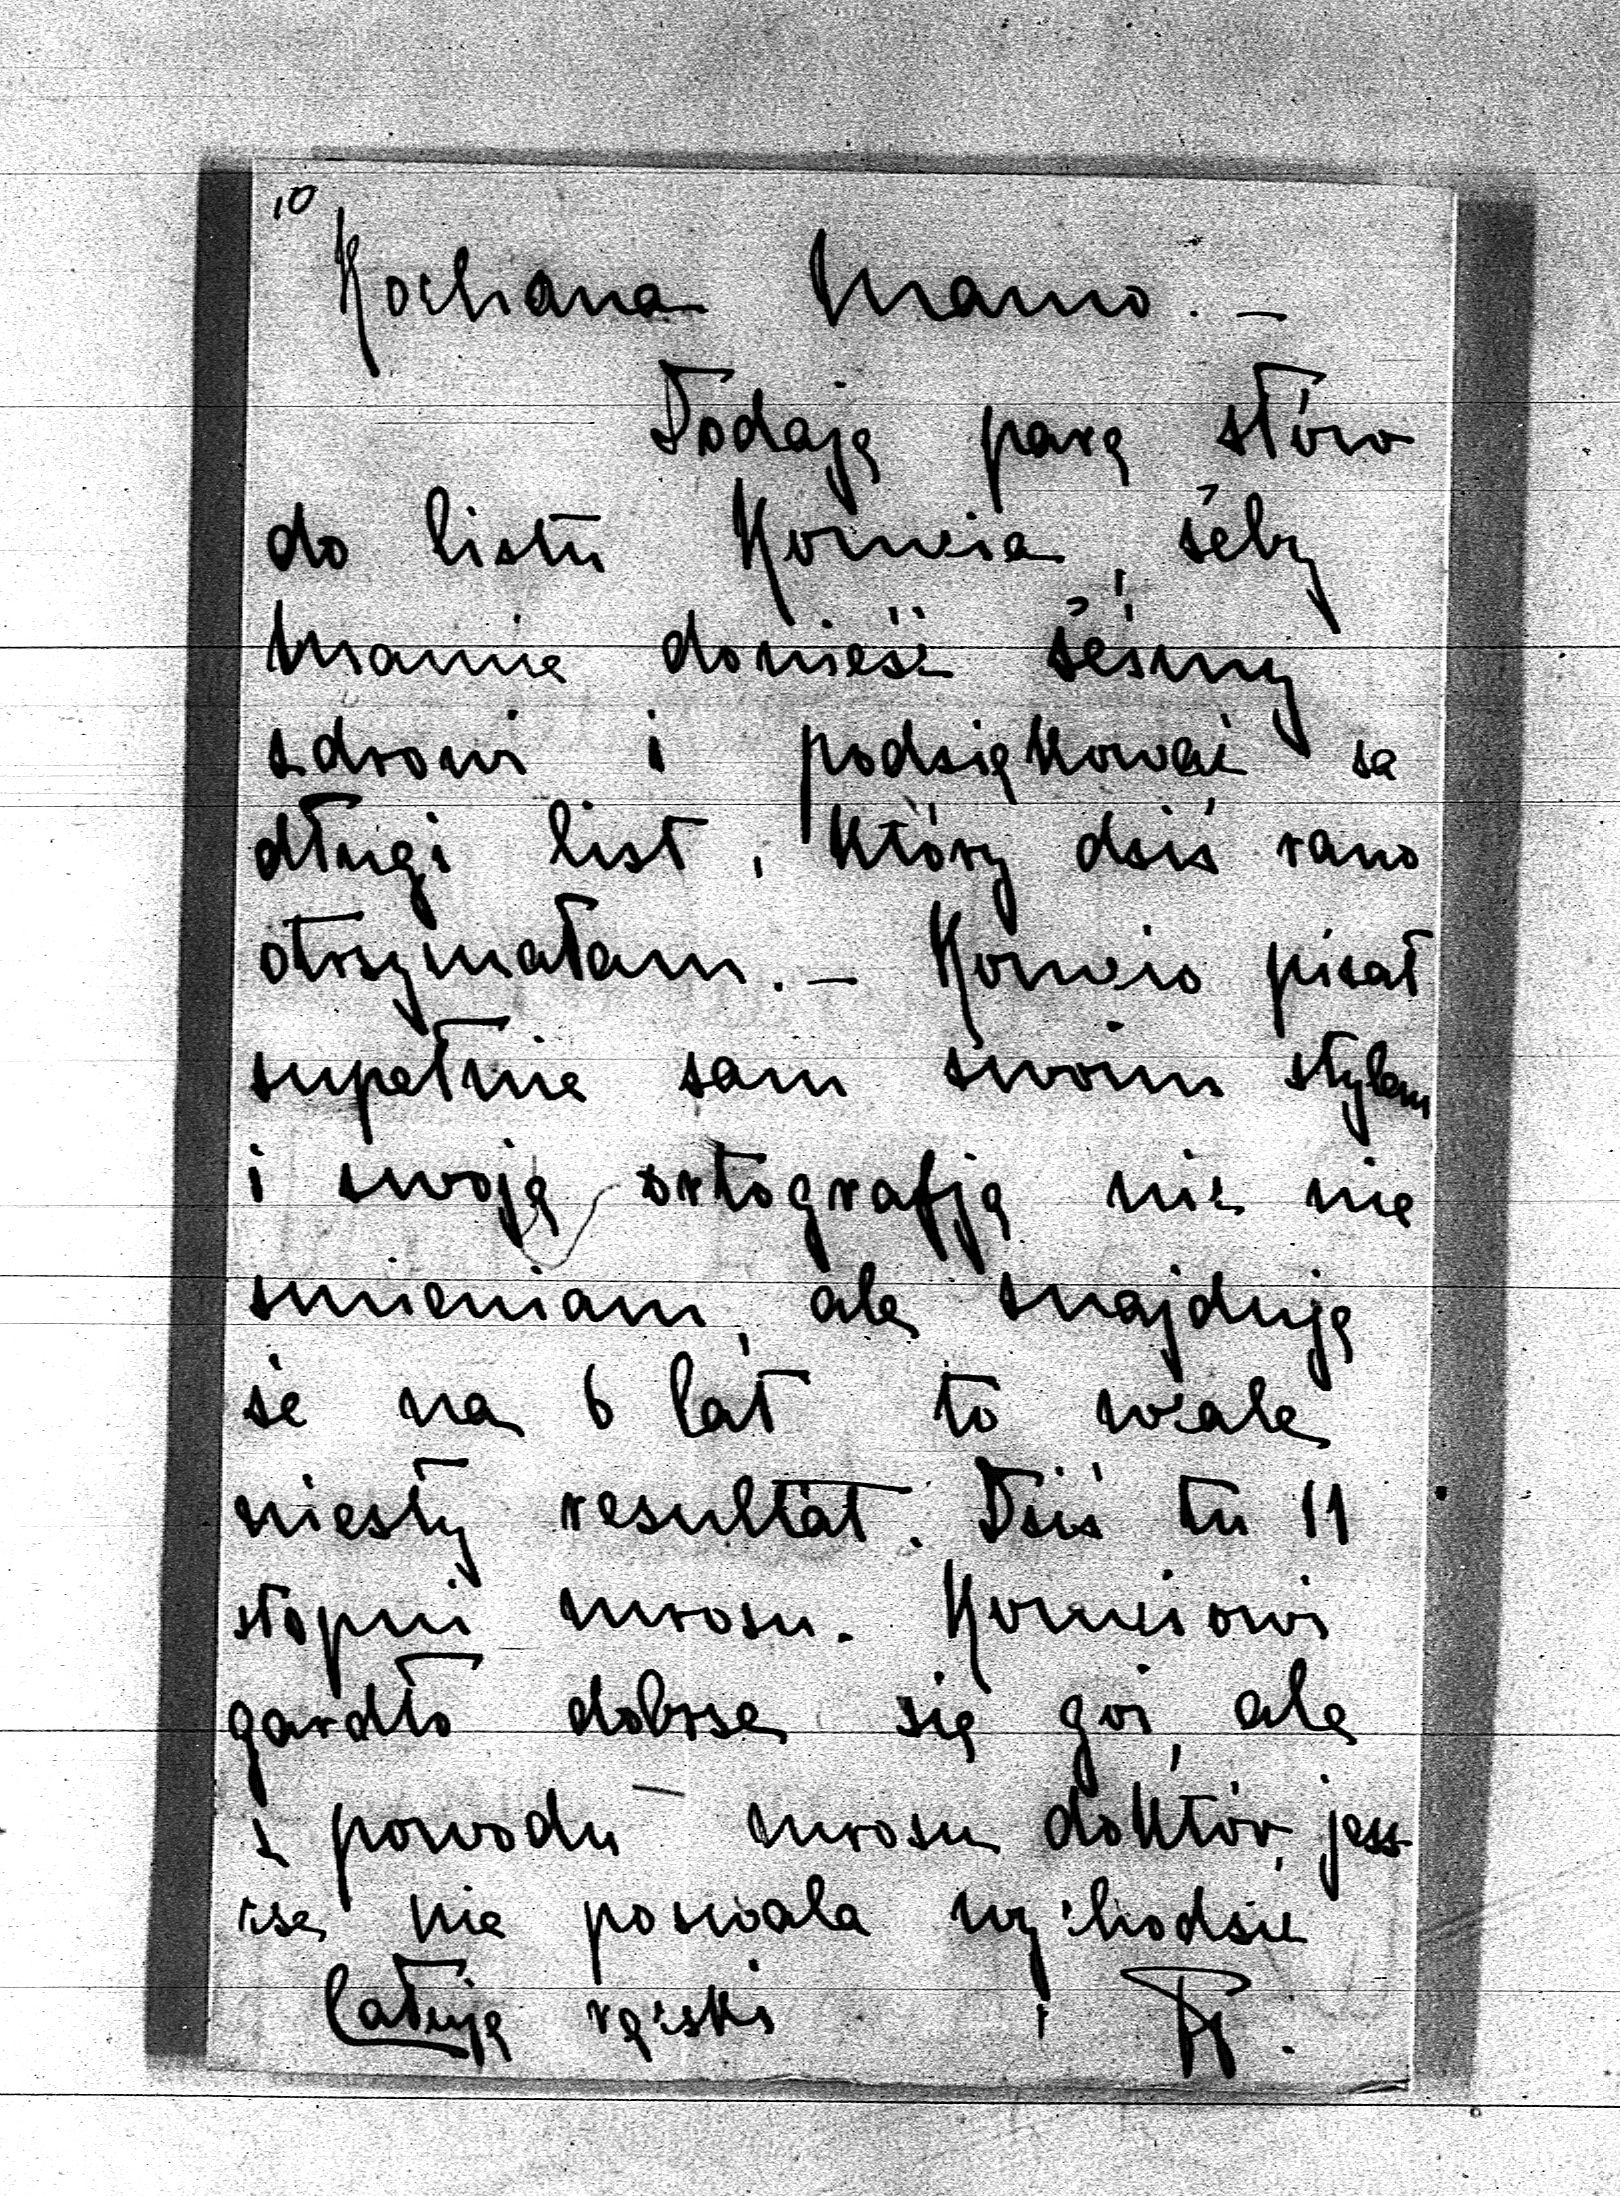 10
Kochana Mamo. —
Dodaję parę słów
do listu Korncia, żeby
Mamie donieść żeśmy
zdrowi i podziękować za
długi list, który dziś rano
otrzymałam. — Korncio pisał
zupełnie sam swoim stylem
i swoją ortografją nic nie
zmieniam, ale znajduję
że na 6 lat to wcale
niezły rezultat. Dziś tu 11
stopni mrozu. Kornciowi
gardło dobrze się goi, ale
z powodu mrozu doktór jesz-
cze nie pozwala wychodzić
Całuję rączki i